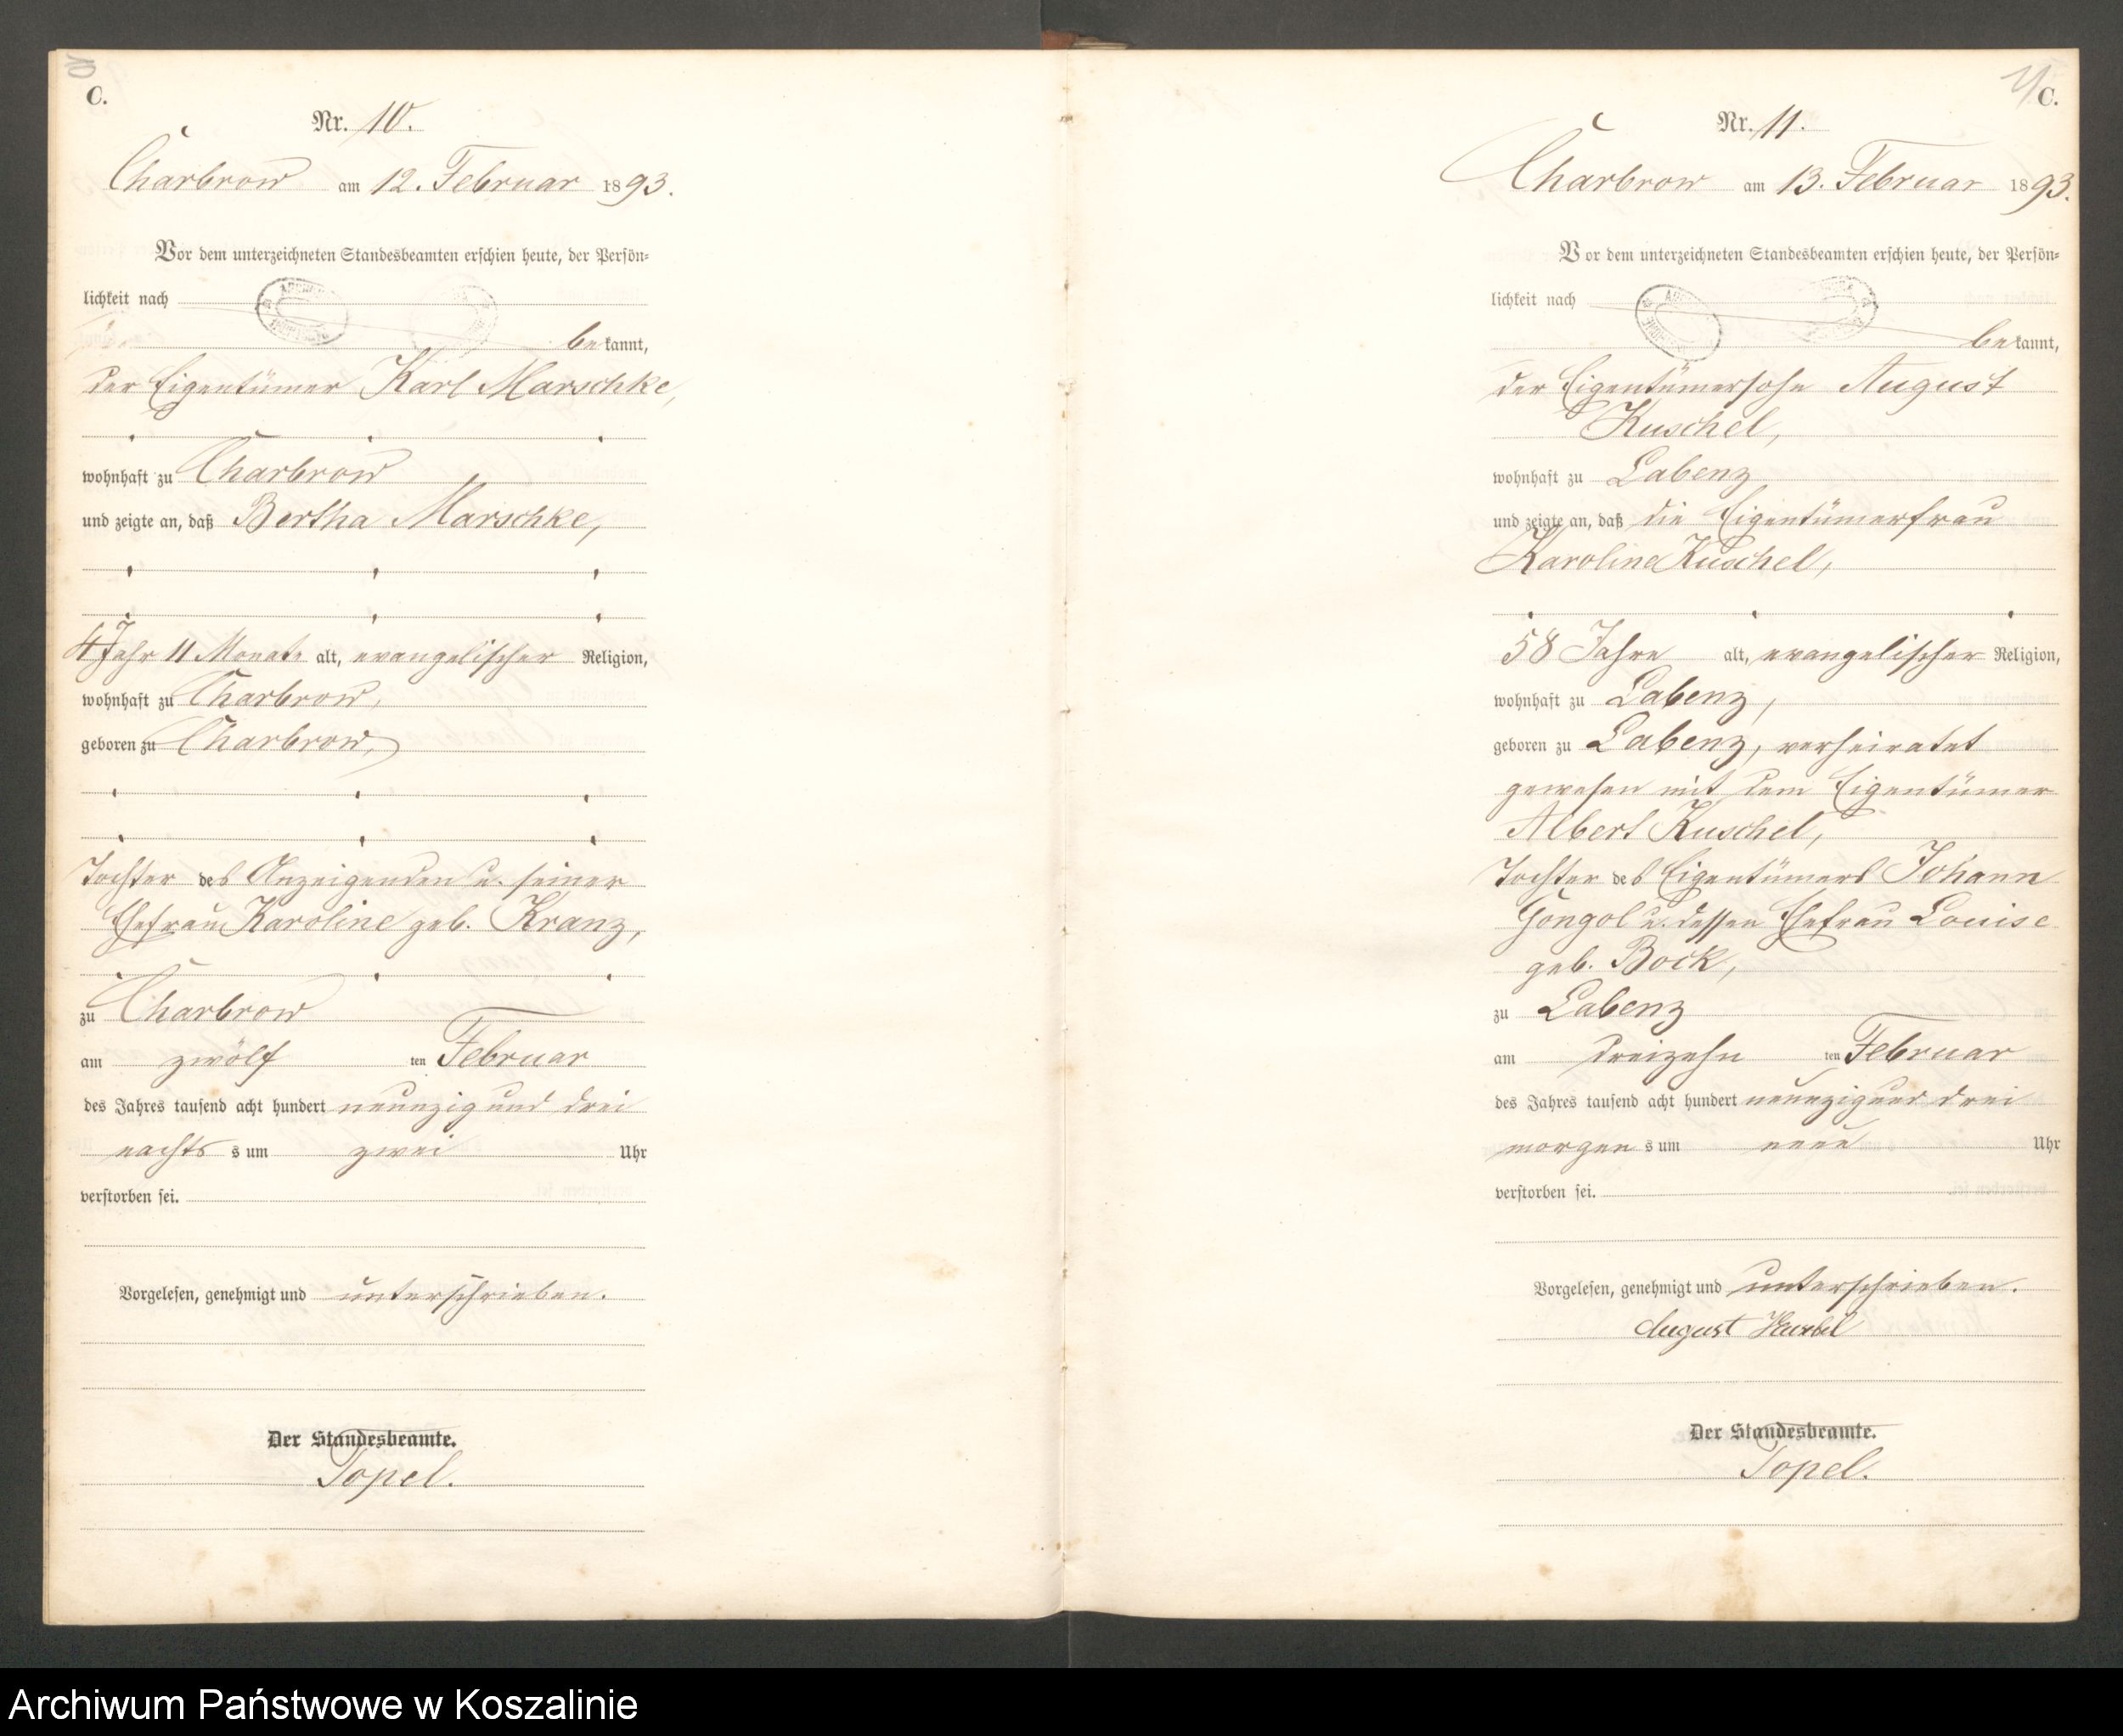 10
C.
Nr. 10.
Charbrow am 12. Februar 1893.
Vor dem unterzeichneten Standesbeamten erschien heute, der Persön=
lichkeit nach
bekannt,
der Eigentümer Karl Marschke,
wohnhaft zu Charbrow
und zeigte an, daß Bertha Marschke,
4 Jahr 11 Monate alt, evangelischer Religion,
wohnhaft zu Charbrow,
geboren zu Charbrow,
Tochter des Anzeigenden u. seiner
Ehefrau Karoline geb. Kranz,
zu Charbrow
am zwölf ten Februar
des Jahres tausend acht hundert neunzig und drei
nachts s um zwei Uhr
verstorben sei.
Vorgelesen, genehmigt und unterschrieben.
Der Standesbeamte.
Topel.
11
C.
Nr. 11.
Charbrow am 13. Februar 1893.
Vor dem unterzeichneten Standesbeamten erschien heute, der Persön=
lichkeit nach
bekannt,
der Eigentümersohn August
Kuschel,
wohnhaft zu Labenz
und zeigte an, daß die Eigentümerfrau
Karoline Kuschel,
58 Jahre alt, evangelischer Religion,
wohnhaft zu Labenz,
geboren zu Labenz, verheiratet
gewesen mit dem Eigentümer
Albert Kuschel,
Tochter des Eigentümers Johann
Gongol u. dessen Ehefrau Louise
geb. Bock,
zu Labenz
am dreizehn ten Februar
des Jahres tausend acht hundert neunzig und drei
morgen s um neun Uhr
verstorben sei.
Vorgelesen, genehmigt und unterschrieben.
August
Der Standesbeamte.
Topel.
Archiwum Państwowe w Koszalinie